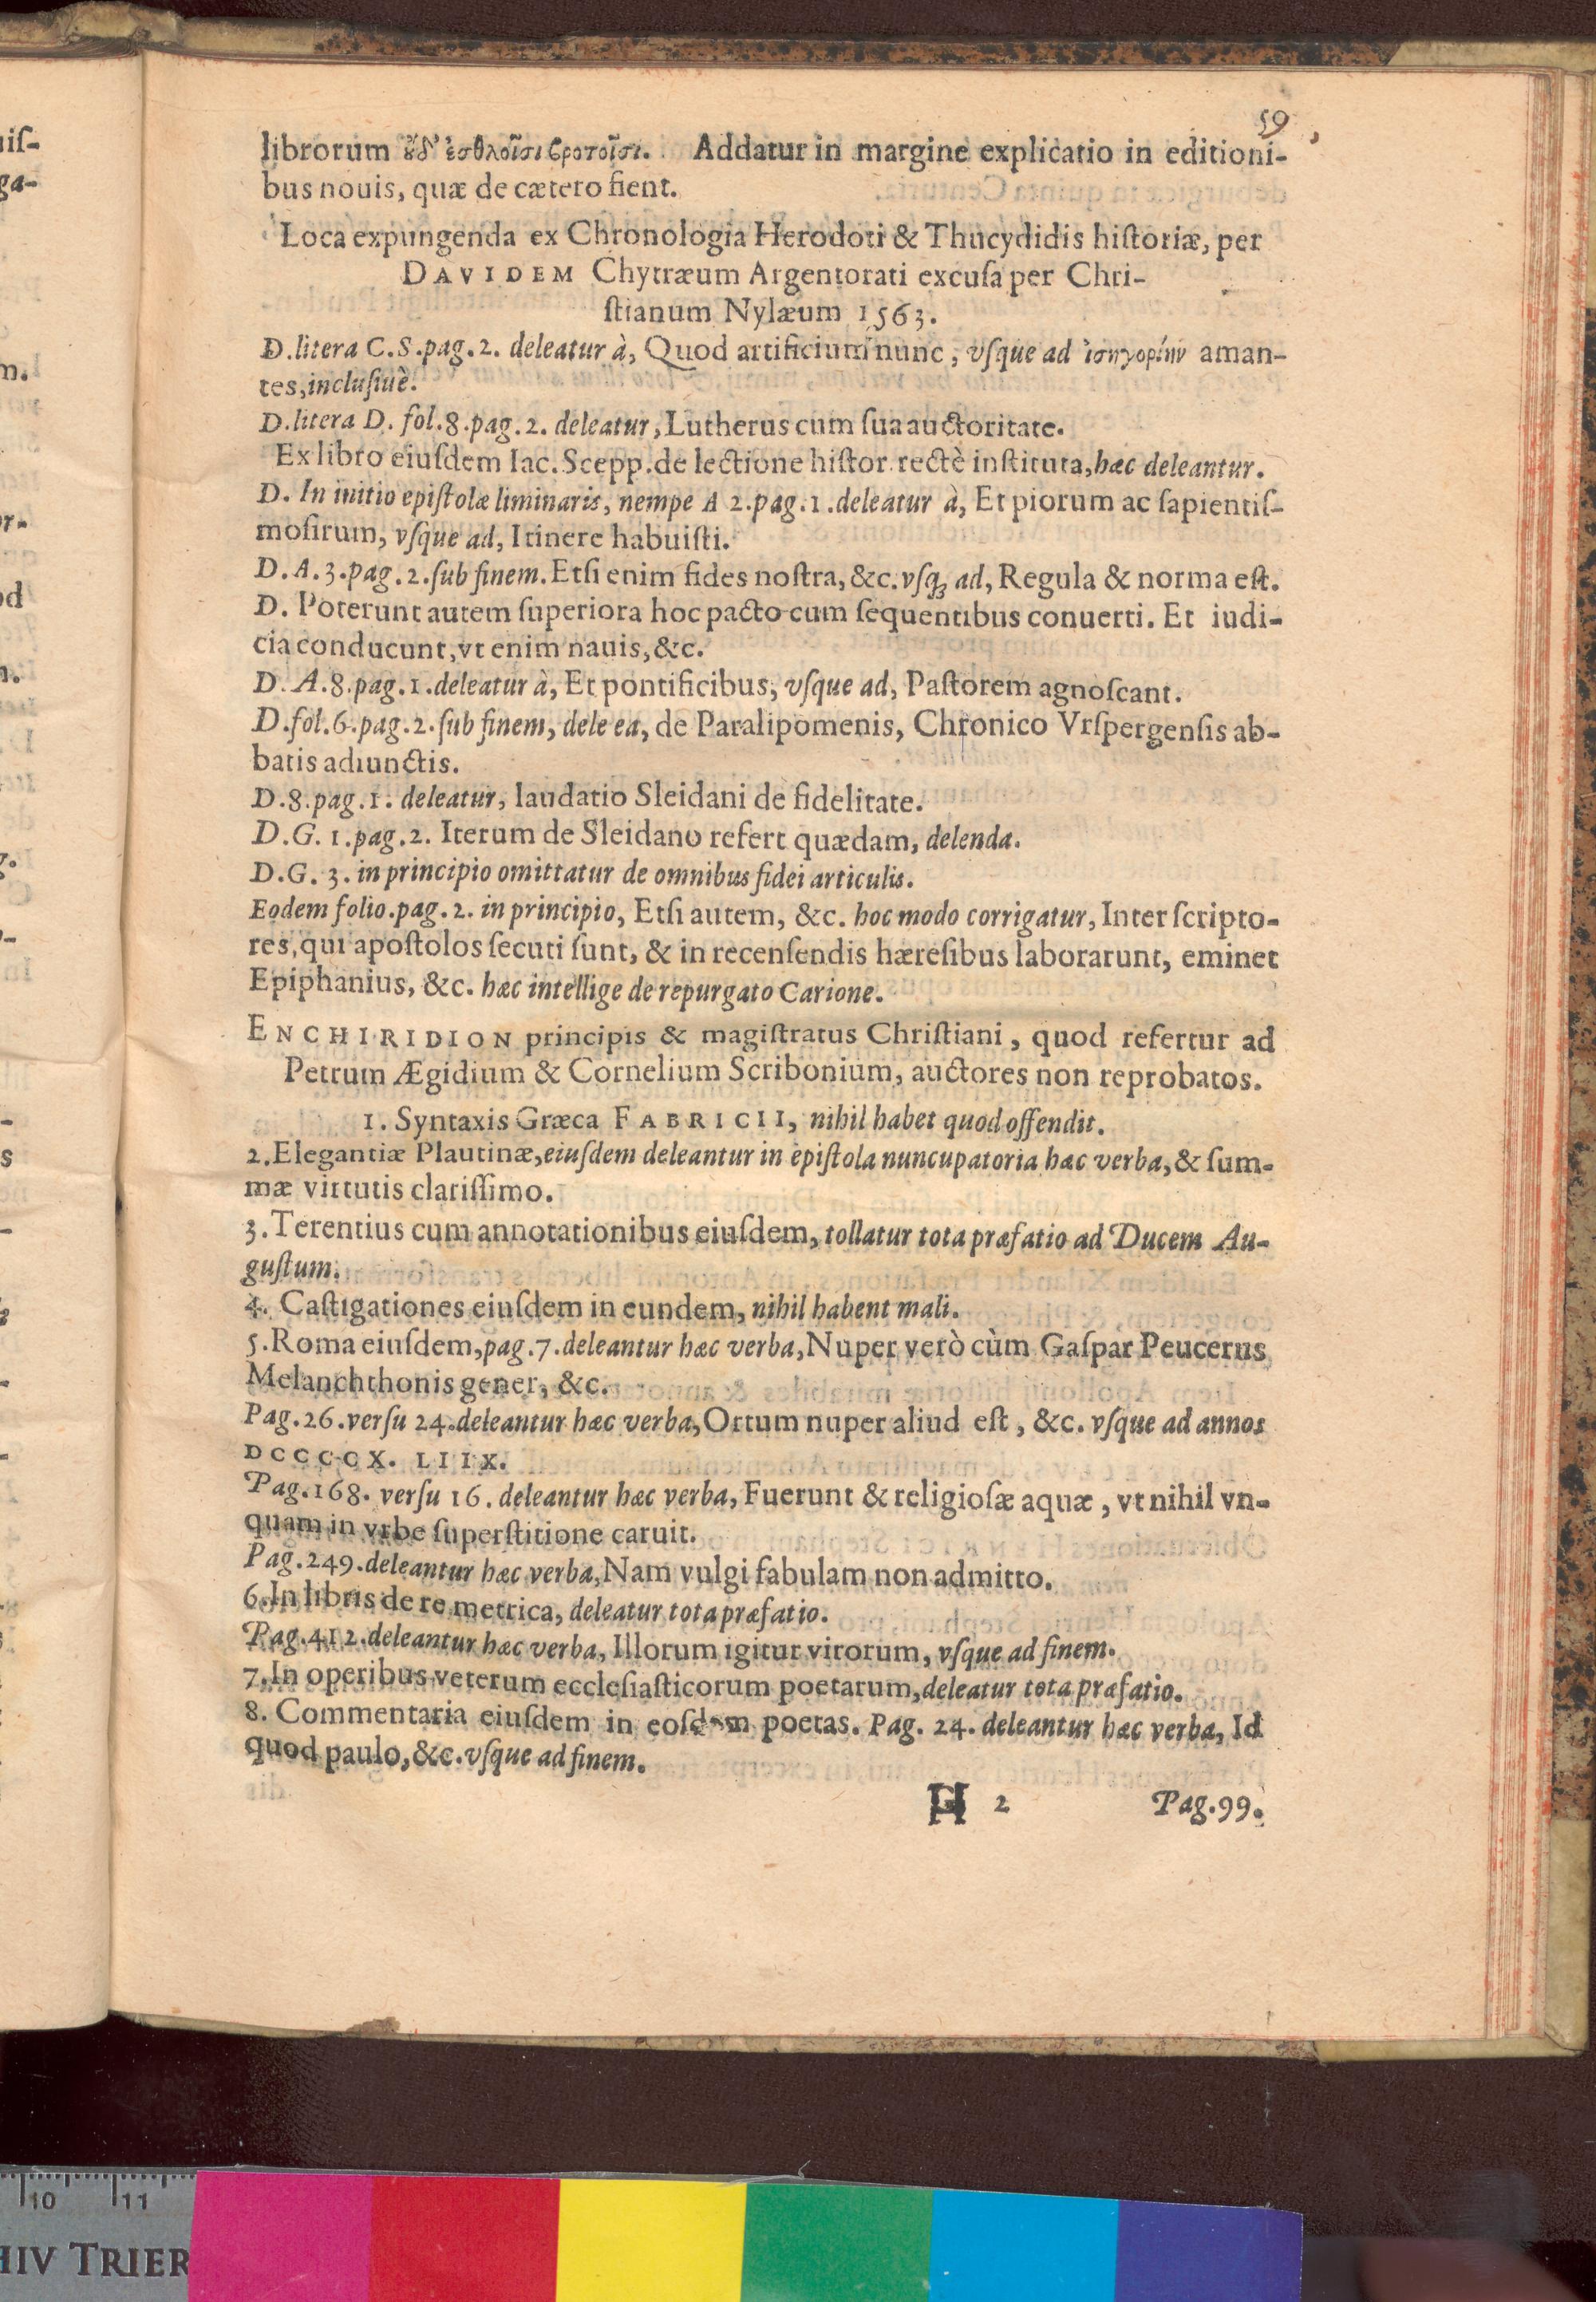 59
librorum ȣ̓δ' ἐσθλοῖσι βροτοῖσι. Addatur in margine explicatio in editioni-
bus nouis, quæ de cætero fient.
Loca expungenda ex Chronologia Herodoti & Thucydidis hiſtoriæ, per
DAVIDEM Chytræum Argentorati excuſa per Chri-
ſtianum Nylæum 1563.
D. litera C. S. pag. 2. deleatur à, Quod artificium nunc, vſque ad ἰσηγορίην aman-
tes, incluſiuè.
D. litera D. fol. 8. pag. 2. deleatur, Lutherus cum ſua auctoritate.
Ex libro eiuſdem Iac. Scepp. de lectione hiſtor. rectè inſtituta, hæc deleantur.
D. In initio epiſtolæ liminaris, nempe A 2. pag. 1. deleatur à, Et piorum ac ſapientiſ-
moſirum, vſque ad, Itinere habuiſti.
D. A. 3. pag. 2. ſub finem. Etſi enim fides noſtra, &c. vſq; ad, Regula & norma eſt.
D. Poterunt autem ſuperiora hoc pacto cum ſequentibus conuerti. Et iudi-
cia conducunt, vt enim nauis, &c.
D. A. 8. pag. 1. deleatur à, Et pontificibus, vſque ad, Paſtorem agnoſcant.
D. fol. 6. pag. 2. ſub finem, dele ea, de Paralipomenis, Chronico Vrſpergenſis ab-
batis adiunctis.
D. 8. pag. 1. deleatur, laudatio Sleidani de fidelitate.
D. G. 1. pag. 2. Iterum de Sleidano refert quædam, delenda.
D. G. 3. in principio omittatur de omnibus fidei articulis.
Eodem folio. pag. 2. in principio, Etſi autem, &c. hoc modo corrigatur, Inter ſcripto-
res, qui apoſtolos ſecuti ſunt, & in recenſendis hæreſibus laborarunt, eminet
Epiphanius, &c. hæc intellige de repurgato Carione.
ENCHIRIDION principis & magiſtratus Chriſtiani, quod refertur ad
Petrum Ægidium & Cornelium Scribonium, auctores non reprobatos.
1. Syntaxis Græca FABRICII, nihil habet quod offendit.
2. Elegantiæ Plautinæ, eiuſdem deleantur in epiſtola nuncupatoria hæc verba, & ſum-
mæ virtutis clariſſimo.
3. Terentius cum annotationibus eiuſdem, tollatur tota præfatio ad Ducem Au-
guſtum.
4. Caſtigationes eiuſdem in eundem, nihil habent mali.
5. Roma eiuſdem, pag. 7. deleantur hæc verba, Nuper verò cùm Gaſpar Peucerus
Melanchthonis gener, &c.
Pag. 26. verſu 24. deleantur hæc verba, Ortum nuper aliud eſt, &c. vſque ad annos
DCCCCX. LIIX.
Pag. 168. verſu 16. deleantur hæc verba, Fuerunt & religioſæ aquæ, vt nihil vn-
quam in vrbe ſuperſtitione caruit.
Pag. 249. deleantur hæc verba, Nam vulgi fabulam non admitto.
6. In libris de re metrica, deleatur tota præfatio.
Pag. 412. deleantur hæc verba, Illorum igitur virorum, vſque ad finem.
7. In operibus veterum eccleſiaſticorum poetarum, deleatur tota præfatio.
8. Commentaria eiuſdem in eoſdem poetas. Pag. 24. deleantur hæc verba, Id
quod paulo, &c. vſque ad finem.
H 2 Pag. 99.
10 11
TRIER